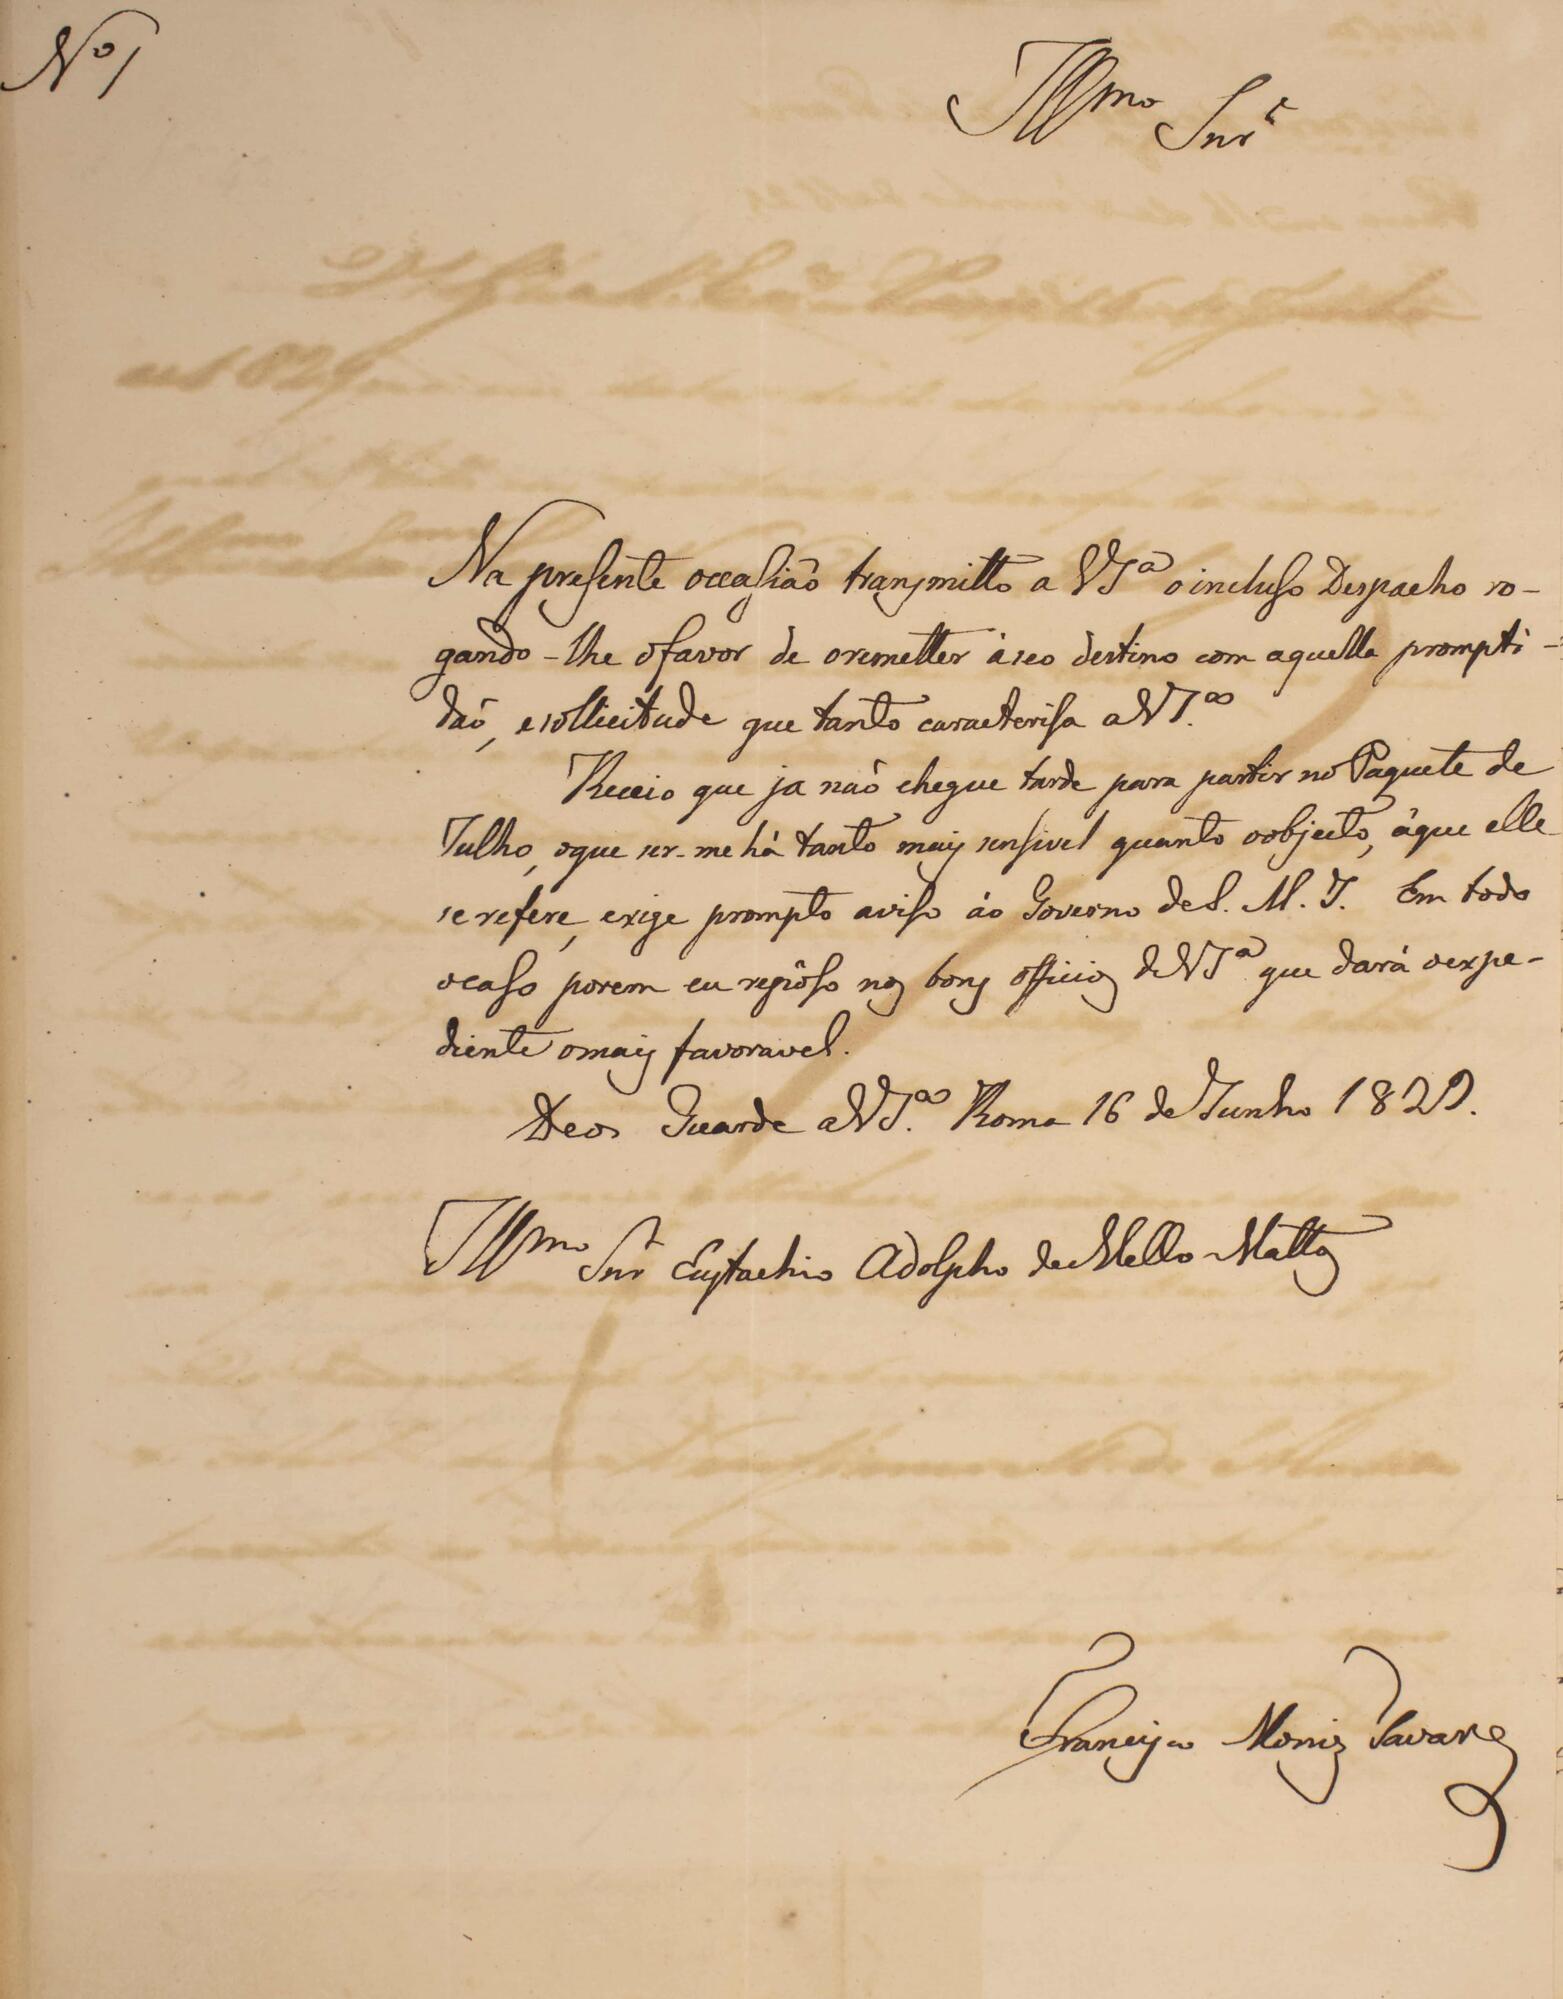 Nº 1
Illmo Snr
Na presente occasiaõ transmitto a VSª o incluso Despacho ro-
gando-lhe o favor de o remetter á seo destino com aquella prompti-
daõ, e sollicitude que tanto caracterisa a VS.ª
Receio que ja naõ chegue tarde para partir no Paquete de
Julho, o que ser-me há tanto mais sensivel quanto o objecto, á que elle
se refere, exige prompto aviso áo Governo de S. M. I. Em todo
o caso porem eu repôso nos bons officios de VSª que dará o expe-
diente o mais favoravel.
Deos Guarde a VS.ª Roma 16 de Junho 1829.
Illmo Snr Eustachio Adolpho de Mello Mattos
Francisco Moniz Tavares